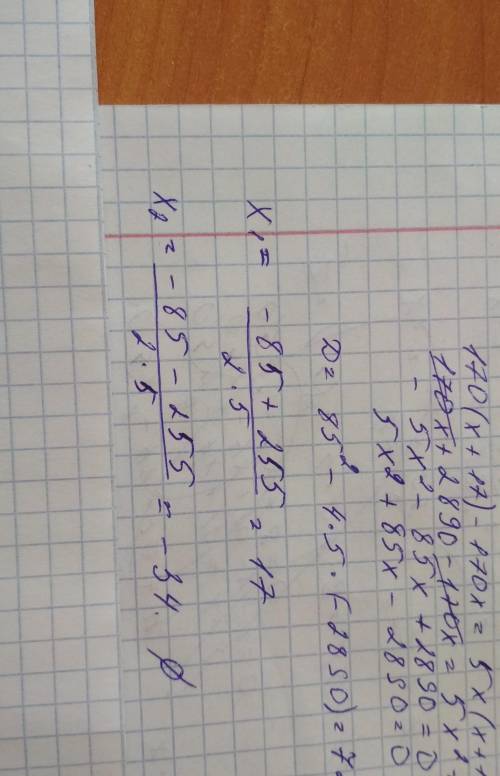 170(x + 17) - 170x = 5x(x +
170x + 2890 - 170x = 5x²
- 5x² - 85x + 2890 = 0
5x² + 85x - 2850 = 0
D = 85² - 4·5·(-2850) = 7
x₁ = (-85 + 255)/(2·5) = 17
x₂ = (-85 - 255)/(2·5) = -34. ∅